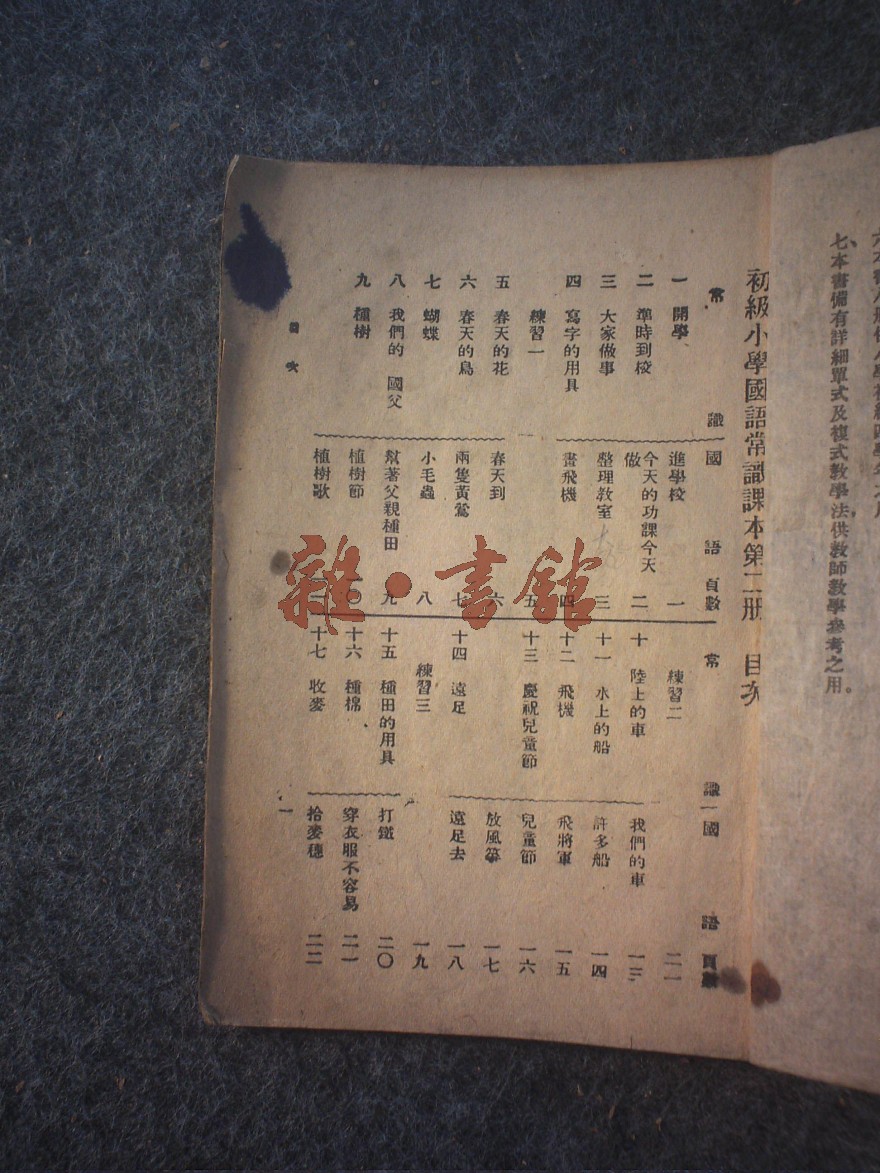 七、本書備有詳細單式及複式教學法供教師教學參考之用。
初級小學國語常識課本第二册 目次
常識 國語 頁數
一 開學 進學校 一
二 準時到校 今天的功課今天做 二
三 大家做事 整理教室 三
四 寫字的用具 畫飛機 四
練習一 五
五 春天的花 春天到 六
六 春天的鳥 兩隻黃鶯 七
七 蝴蝶 小毛蟲 八
八 我們的 國父 幫著父親種田 九
九 種樹 植樹節 一〇
植樹歌 一一
常識 國語 頁數
練習二 一二
十 陸上的車 我們的車 一三
十一 水上的船 許多船 一四
十二 飛機 飛將軍 一五
十三 慶祝兒童節 兒童節 一六
放風箏 一七
十四 遠足 遠足去 一八
練習三 一九
十五 種田的用具 打鐵 二〇
十六 種棉 穿衣服不容易 二一
十七 收麥 拾麥穗 二二
目次 一
雜·書館